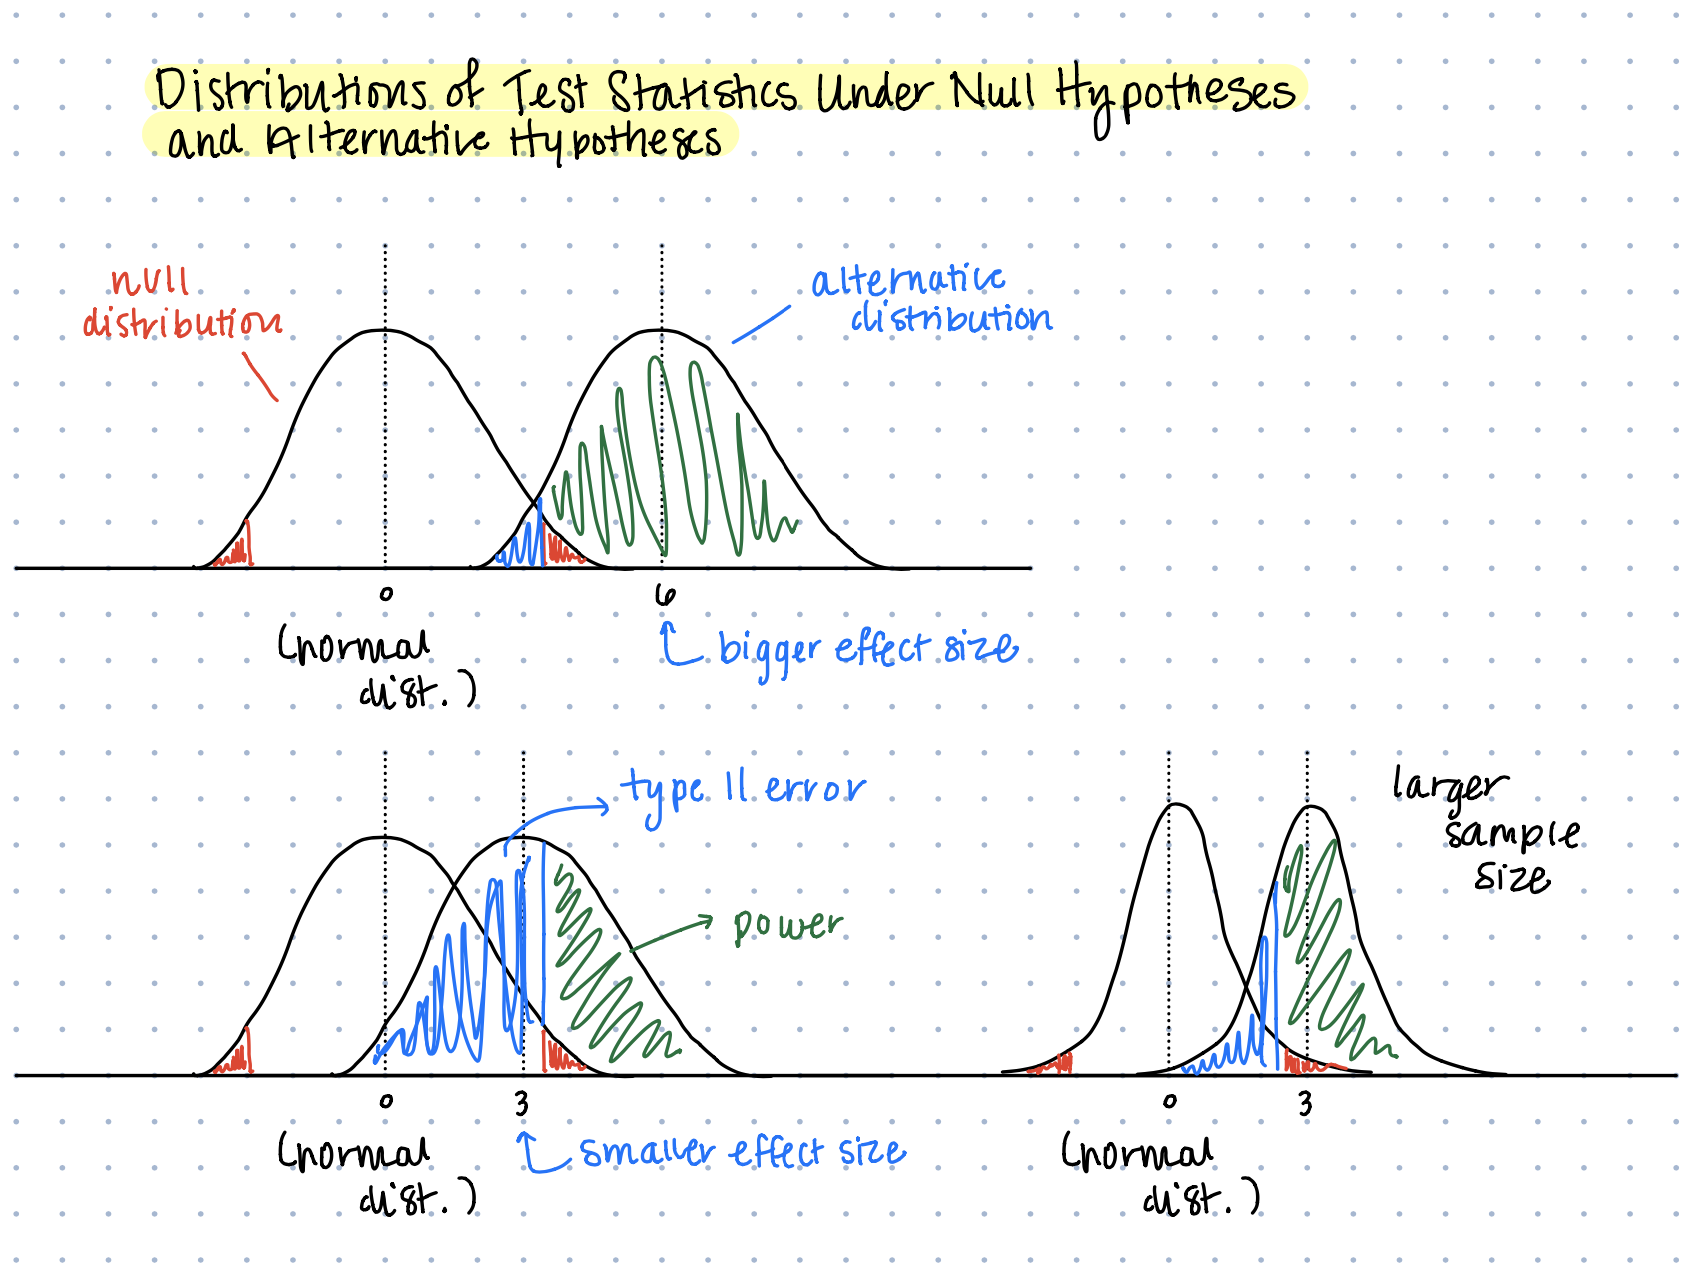 Distributions of Test Statistics Under Null Hypotheses
and Alternative Hypotheses
null
distribution
alternative
distribution
0
6
(normal
dist.)
bigger effect size
type II error
power
0
3
(normal
dist.)
smaller effect size
larger
sample
size
0
3
(normal
dist.)